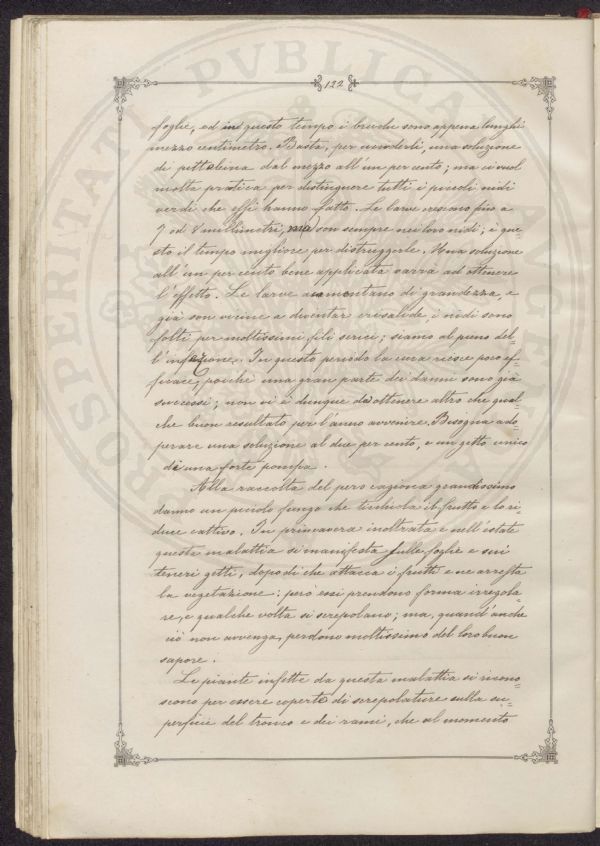 122
foglie, ed in questo tempo i bruchi sono appena lunghi
mezzo centimetro. Basta, per ucciderli, una soluzione
di pitteleina dal mezzo all'un per cento; ma ci vuol
molta pratica per distinguere tutti i piccoli nidi
verdi che essi hanno fatto. Le larve crescono fino a
7 od 8 millimetri, ma son sempre nei loro nidi; è que=
sto il tempo migliore per distruggerle. Una soluzione
all'un per cento bene applicata varrà ad ottenere
l'effetto. Le larve aumentano di grandezza, e
già son vicine a diventar crisalide; i nidi sono
folti per moltissimi fili serici; siamo al pieno del=
l'infezione. In questo periodo la cura riesce poco ef=
ficace, poichè una gran parte dei danni sono già
successi; non vi è dunque da ottenere altro che qual=
che buon resultato per l'anno avvenire. Bisogna ado=
perare una soluzione al due per cento, e un getto unico
di una forte pompa.
Alla raccolta del pero cagiona grandissimo
danno un piccolo fungo che ticchiola il frutto e lo ri=
duce cattivo. In primavera inoltrata e nell'estate
questa malattia si manifesta sulle foglie e sui
teneri getti, dopo di che attacca i frutti e ne arresta
la vegetazione: però essi prendono forma irregola=
re, e qualche volta si screpolano; ma, quand'anche
ciò non avvenga, perdono moltissimo del loro buon
sapore.
Le piante infette da questa malattia si ricono=
scono per essere coperte di screpolature sulla su=
perficie del tronco e dei rami, che al momento
PROSPERITATI PVBLICAE AVGENDAE